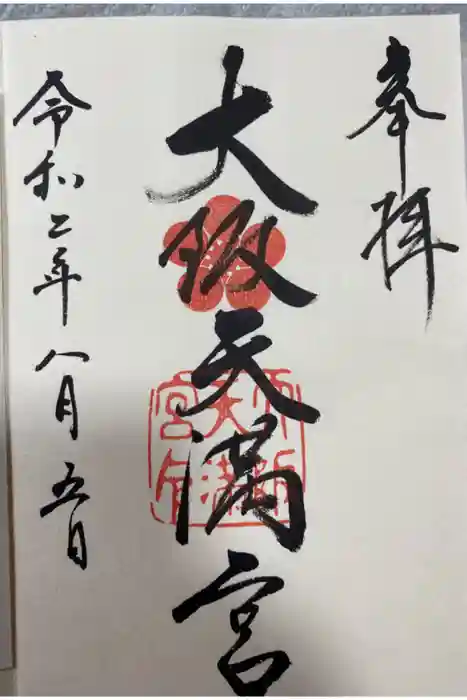 奉拝
大阪天満宮
令和二年八月五日